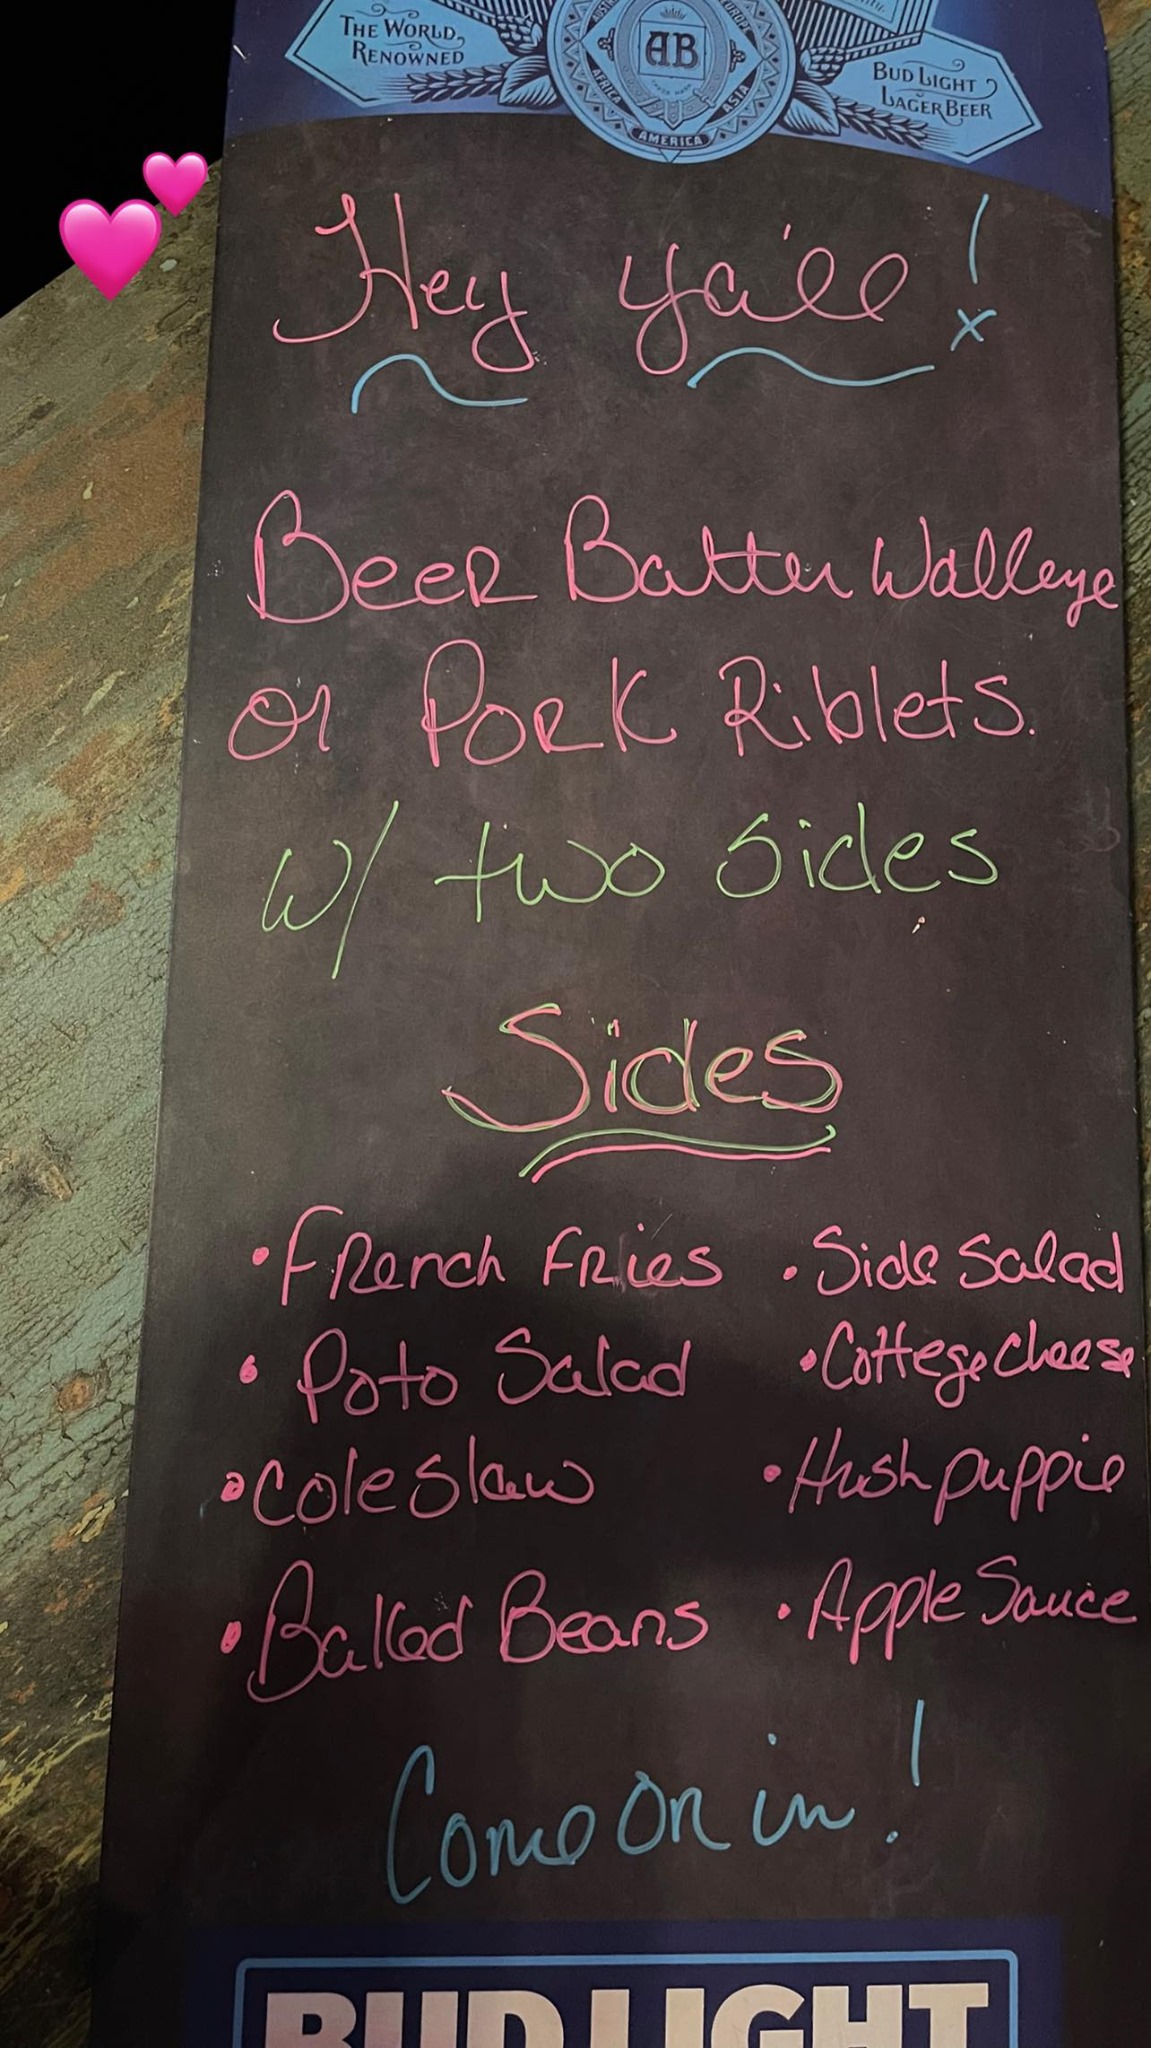 THE WORLD
RENOWNED
AB
AFRICA
ASIA
EUROPE
TRADE MARK
AMERICA
BUD LIGHT
LAGER BEER
Hey ya'll!
Beer Batter Walleye
or Pork Riblets.
w/ two sides
Sides
• French Fries • Side Salad
• Poto Salad • Cottege Cheese
• Coleslaw • Hushpuppie
• Baked Beans • Apple Sauce
Come On in!
BUD LIGHT